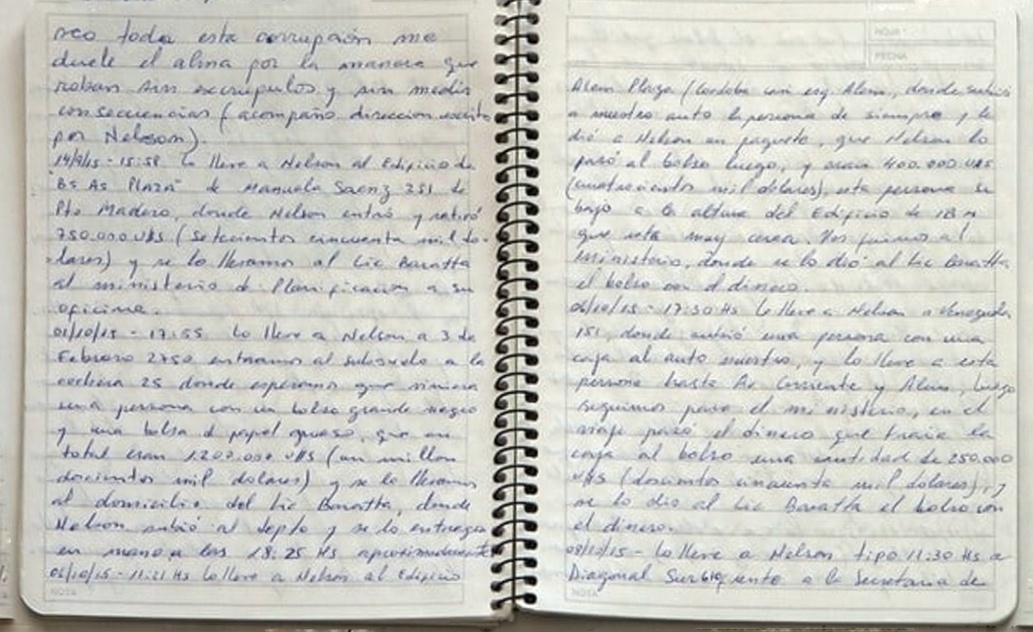 veo toda esta corrupción me
duele el alma por la manera que
roban sin escrupulos y sin medir
consecuencias (acompaño direccion escrita
por Nelson).
14/9/15 - 15:58 Lo lleve a Nelson al Edificio de
"Bs As Plaza" de Manuela Saenz 351 de
Pto Madero, donde Nelson entró y retiró
750.000 U$S (setecientos cincuenta mil do-
lares) y se lo llevamos al Lic Baratta
al ministerio de Planificacion a su
oficina.
01/10/15 - 17:55 Lo lleve a Nelson a 3 de
Febrero 2750 entramos al subsuelo a la
cochera 25 donde esperamos que viniera
una persona con un bolso grande negro
y una bolsa d papel grueso, que en
total eran 1.200.000 U$S (un millon
docientos mil dolares) y se lo llevamos
al domicilio del Lic Baratta, donde
Nelson subió al depto y se lo entregó
en mano a las 18:25 Hs aproximadamente
05/10/15 - 11:21 Hs Lo lleve a Nelson al Edificio
NOTA
HOJA
FECHA
Alem Plaza (Cordoba casi esq. Alem, donde subió
a nuestro auto la persona de siempre y le
dió a Nelson un paquete, que Nelson lo
pasó al bolso luego, y eran 400.000 U$S
(cuatrocientos mil dolares), esta persona se
bajo a la altura del Edificio de IBM
que esta muy cerca. Nos fuimos al
ministerio, donde se lo dió al Lic Baratta
el bolso con el dinero.
06/10/15 - 17:30 Hs Lo lleve a Nelson a Venezuela
151, donde subió una persona con una
caja al auto nuestro, y lo lleve a esta
persona hasta Av Corriente y Alem, luego
seguimos para el ministerio, en el
viaje pasó el dinero que traia la
caja al bolso una cantidad de 250.000
U$S (doscientos cincuenta mil dolares), y
se lo dio al Lic Baratta el bolso con
el dinero.
08/10/15 - Lo lleve a Nelson tipo 11:30 Hs a
Diagonal Sur 616, a la Secretaria de
NOTA